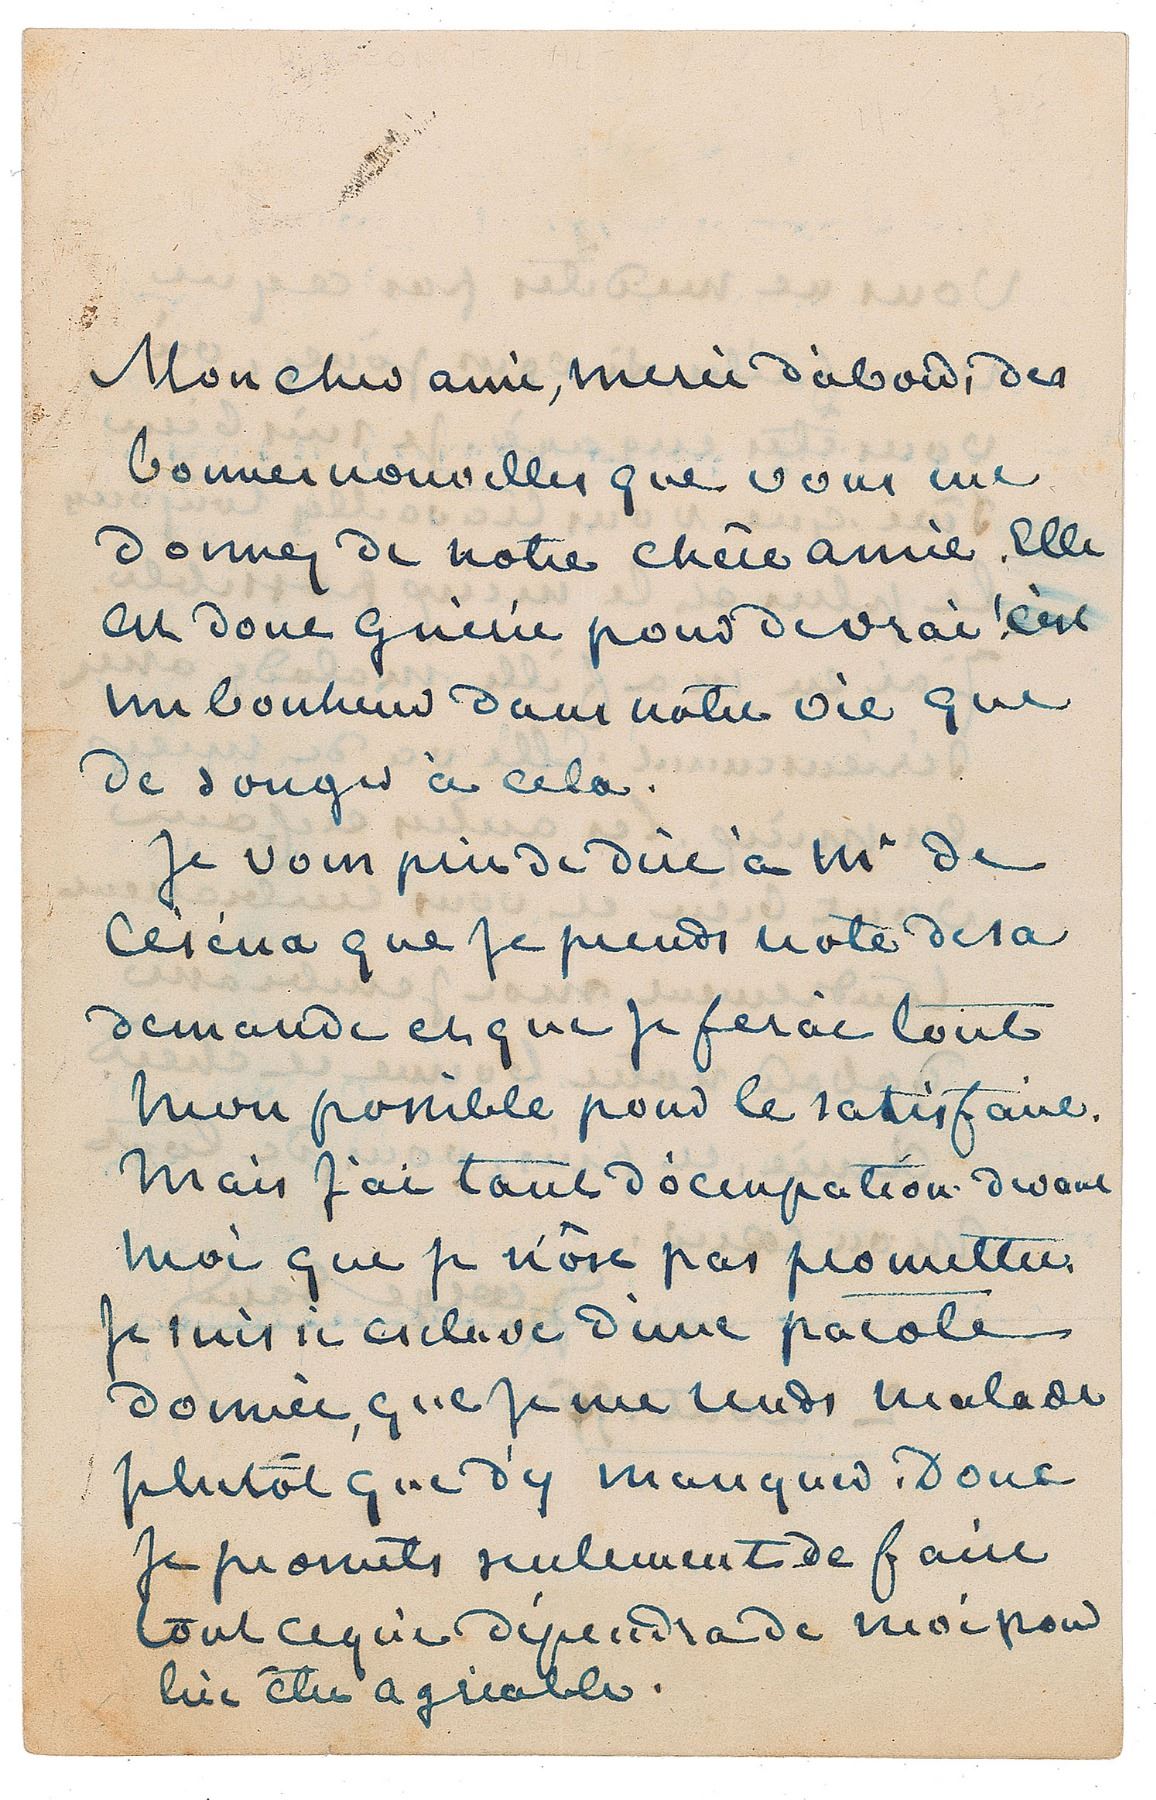 Mon cher ami, merci d'abord, des
bonnes nouvelles que vous me
donnez de notre chère amie. Elle
est donc guérie pour de vrai! c'est
un bonheur dans notre vie que
de songer à cela.
Je vous prie de dire à Mr de
Céséna que je prends note de sa
demande et que je ferai tout
mon possible pour le satisfaire.
Mais j'ai tant d'occupation devant
moi que je n'ose pas promettre.
Je suis si esclave d'une parole
donnée, que je me rends malade
plutôt que d'y manquer. Donc
je promets seulement de faire
tout ce qui dépendra de moi pour
lui être agréable.